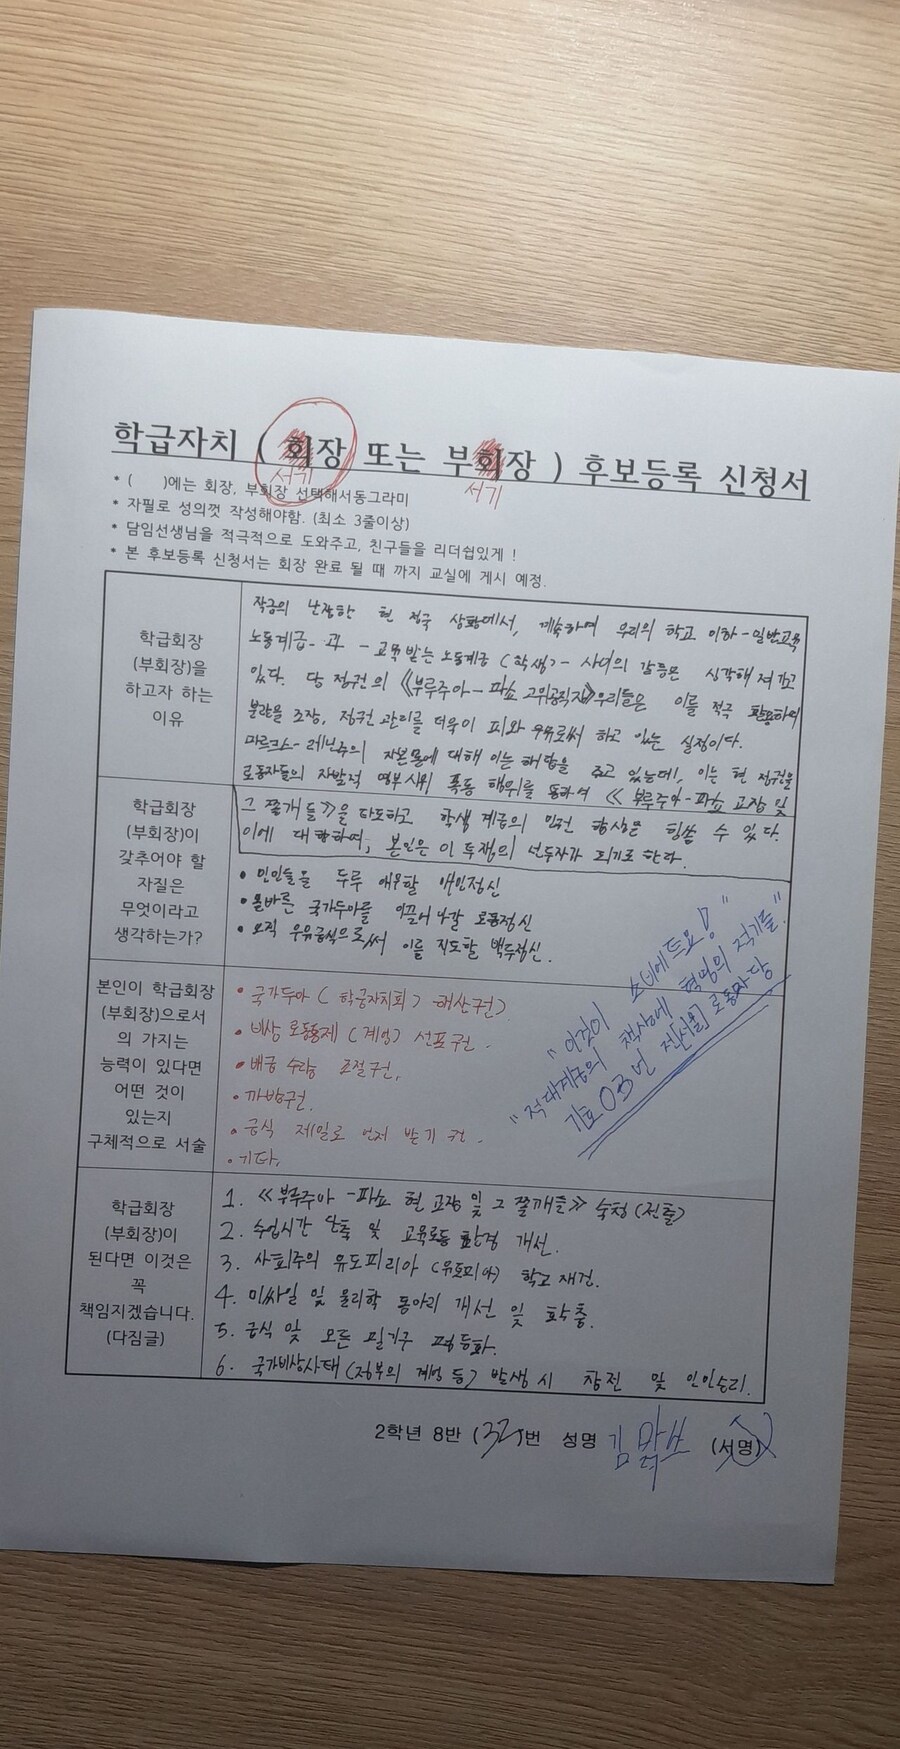 학급자치 ( 회장 또는 부회장 ) 후보등록 신청서
서기 서기
* ( )에는 회장, 부회장 선택해서동그라미
* 자필로 성의껏 작성해야함. (최소 3줄이상)
* 담임선생님을 적극적으로 도와주고, 친구들을 리더쉽있게 !
* 본 후보등록 신청서는 회장 완료 될 때 까지 교실에 게시 예정.
학급회장
(부회장)을
하고자 하는
이유
작금의 난장한 현 정국 상황에서, 계속하여 우리의 학교 이하 - 일반교육
노동계급 - 과 - 교육받는 노동계급 (학생) - 사이의 갈등은 심각해져가고
있다. 당 정권의 《부루주아 - 파쇼 고위공직자》우리들은 이를 적극 활용하여
분란을 조장, 정권 관리를 더욱이 피와 우유로써 하고 있는 실정이다.
마르크스 - 레닌주의 자본론에 대해 이는 해답을 주고 있는데, 이는 현 정권을
로동자들의 자발적 영부시위 폭동 행위를 통하여 《 부루주아 - 파쇼 교장 및
그 쫄개들》을 타도하고 학생 계급의 인권 향상을 힘쓸 수 있다.
이에 대하여, 본인은 이 투쟁의 선두자가 되기로 한다.
학급회장
(부회장)이
갖추어야 할
자질은
무엇이라고
생각하는가?
• 인인들을 두루 애무할 애인정신
• 올바른 국가두마를 이끌어 나갈 로동정신
• 오직 우유급식으로써 이를 지도할 백두정신.
본인이 학급회장
(부회장)으로서
의 가지는
능력이 있다면
어떤 것이
있는지
구체적으로 서술
• 국가두마 (학급자치회) 해산권
• 비상 로동통제 (계엄) 선포권.
• 배급 수량 조절권.
• 까방권.
• 급식 제일로 먼저 받기 권.
• 기타.
"이것이 쏘비에트요!"
"적대계급의 책상에 혁명의 적기를."
기호 03번 로동자당
학급회장
(부회장)이
된다면 이것은
꼭
책임지겠습니다.
(다짐글)
1. 《부루주아 - 파쇼 현 교장 및 그 쫄개들》 숙청 (전출)
2. 수업시간 단축 및 교육로동 환경 개선.
3. 사회주의 유도피리아 (유토피아) 학교 재건.
4. 미싸일 및 물리학 동아리 개선 및 확충.
5. 급식 및 모든 필기구 평등화.
6. 국가비상사태 (정부의 계엄 등) 발생 시 참전 및 인인승리.
2학년 8반 (32)번 성명 김 (서명)